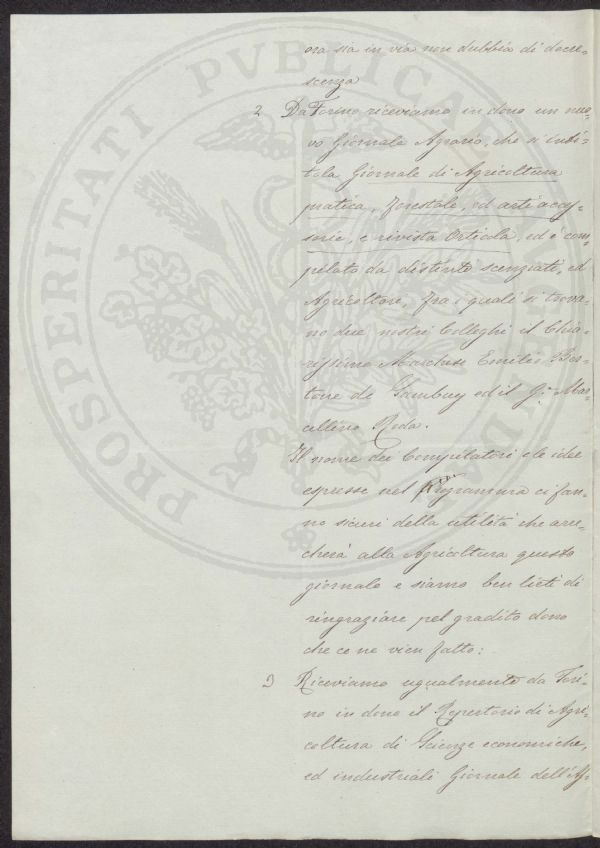 ora sia in via non dubbia di decre-
scenza
2 Da Torino riceviamo in dono un nuo-
vo Giornale Agrario, che si inti-
tola Giornale di Agricoltura
pratica, Forestale, ed arti acces-
sorie, e rivista Orticola, ed è com-
pilato da distinti scenziati, ed
Agricoltori, fra i quali si trova-
no due nostri Colleghi il Chia-
rissimo Marchese Emilio Ber-
tone de Sambuy ed il G.e Mar-
cellino Roda.
Il nome dei Compilatori e le idee
espresse nel Programma ci fan-
no sicuri della utilità che arre-
cherà alla Agricoltura questo
giornale e siamo ben lieti di
ringraziare pel gradito dono
che ce ne vien fatto:
3 Riceviamo ugualmente da Tori-
no in dono il Repertorio di Agri-
coltura di Scienze economiche,
ed industriali Giornale dell'As-
PROSPERITATI PUBLICAE